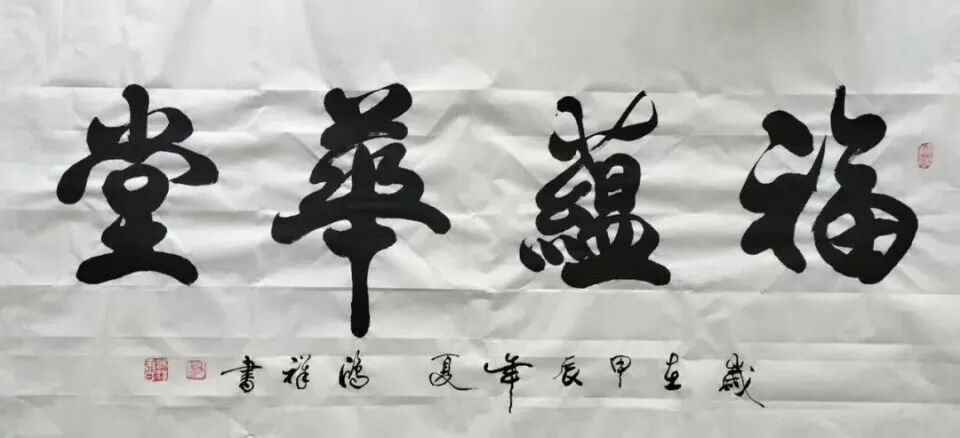 福蘊華堂
歲在甲辰年夏 鴻祥書